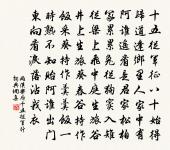 十五從軍征八十始得
歸道逢鄉里人家中有
阿誰遙看是君家松柏
冢累累兔從狗竇入雉
從梁上飛中庭生旅谷
井上生旅葵舂谷持作
飯采葵持作羹羹飯一
時熟不知貽阿誰出門
東向看淚落沾我衣
兩漢樂府十五從軍行